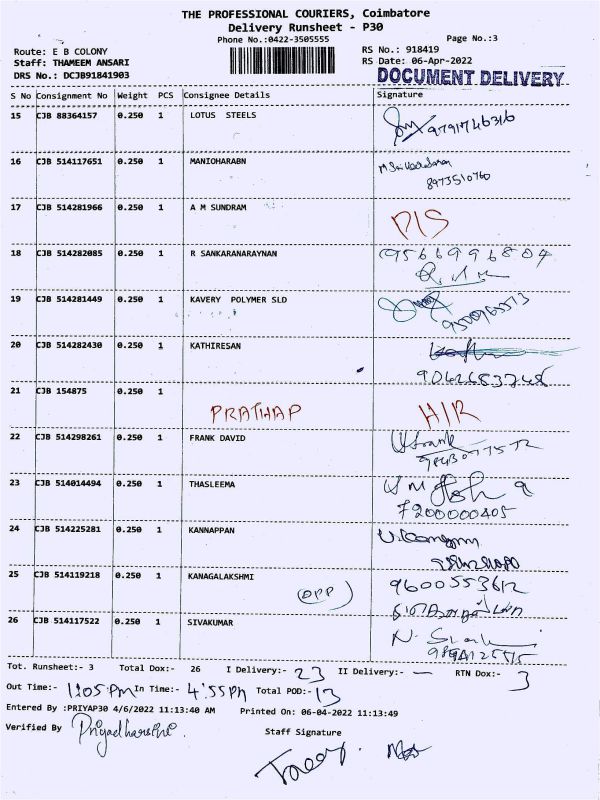 THE PROFESSIONAL COURIERS, Coimbatore
Delivery Runsheet - P30
Phone No.:0422-3505555
Page No.:3
Route: E B COLONY
RS No.: 918419
Staff: THAMEEM ANSARI
RS Date: 06-Apr-2022
DRS No.: DCJB91841903
DOCUMENT DELIVERY
S No Consignment No Weight PCS Consignee Details Signature
15 CJB 88364157 0.250 1 LOTUS STEELS 9791746316
16 CJB 514117651 0.250 1 MANIOHARABN
8973510760
17 CJB 514281966 0.250 1 A M SUNDRAM DIS
18 CJB 514282085 0.250 1 R SANKARANARAYNAN 9566996804
19 CJB 514281449 0.250 1 KAVERY POLYMER SLD
20 CJB 514282430 0.250 1 KATHIRESAN
9042683748
21 CJB 154875 0.250 1
PRATHAP H/R
22 CJB 514298261 0.250 1 FRANK DAVID Frank
23 CJB 514014494 0.250 1 THASLEEMA
7200000405
24 CJB 514225281 0.250 1 KANNAPPAN
25 CJB 514119218 0.250 1 KANAGALAKSHMI 9600553612
OPP
26 CJB 514117522 0.250 1 SIVAKUMAR
Tot. Runsheet:- 3 Total Dox:- 26 I Delivery:- 23 II Delivery:- — RTN Dox:- 3
Out Time:- 1:05 Pm In Time:- 4:55 Pm Total POD:- 13
Entered By :PRIYAP30 4/6/2022 11:13:40 AM Printed On: 06-04-2022 11:13:49
Verified By Priyadharshi
Staff Signature